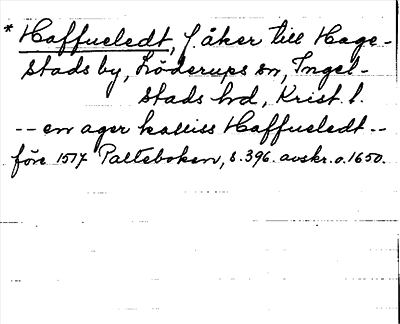 * Haffueledt, f. åker till Hage-
stads by, Löderups sn, Ingel-
stads hd, Krist. l.
-- en ager kalliss Haffueledt --
före 1514 Palteboken, s. 396. avskr. o. 1650.